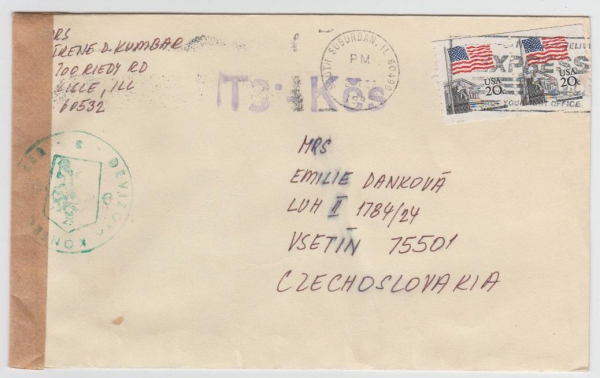 MRS
IRENE D. KUMBAR
700 RIEDY RD
LISLE, ILL
60532
SUBURBAN, IL
PM
USA
20c
USA
20c
EXPRESS
YOUR POST OFFICE
T3 Kčs
DEVIZOVÁ
MRS
EMILIE DANKOVÁ
LUH II 1784/24
VSETÍN 75501
CZECHOSLOVAKIA